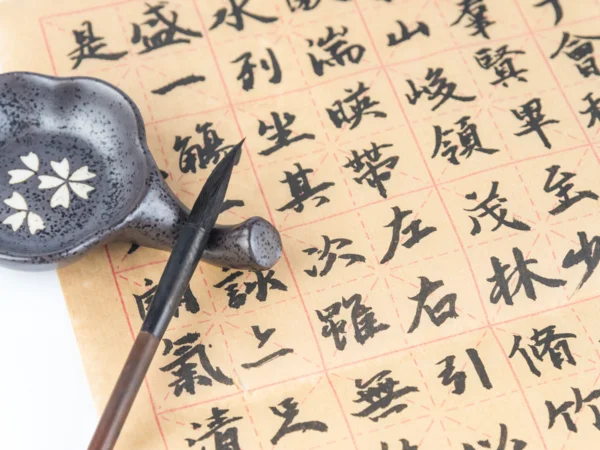 會
羣賢畢至少
山峻領茂林脩竹
湍暎帶左右引
水列坐其次雖無
盛一觴一詠足
是朗氣清